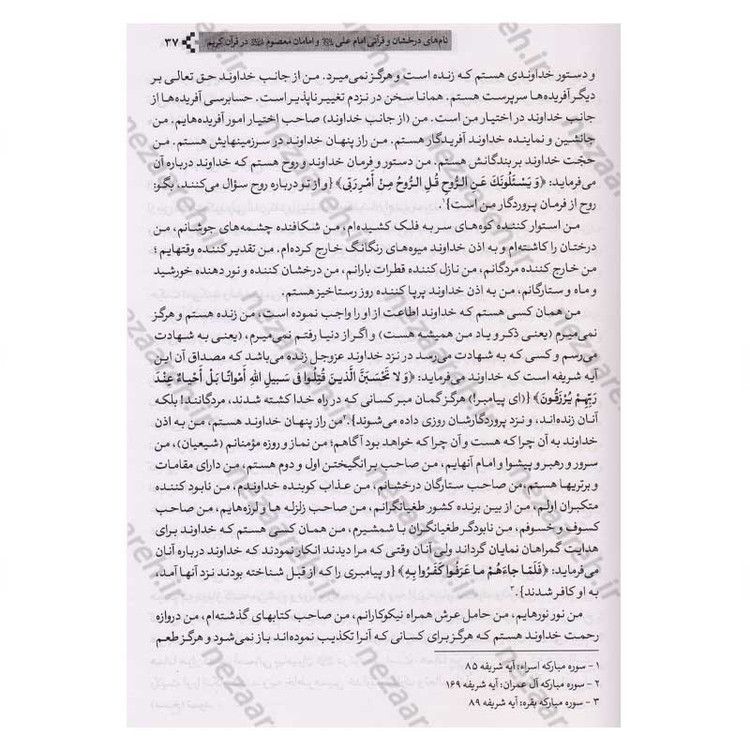 نام‌های درخشان و قرآنی امام علی و امامان معصوم در قرآن کریم ۳۷
و دستور خداوندی هستم که زنده است و هرگز نمی‌میرد. من از جانب خداوند حق تعالی بر
دیگر آفریده‌ها سرپرست هستم. همانا سخن در نزدم تغییر ناپذیر است. حسابرسی آفریده‌ها از
جانب خداوند در اختیار من است. من (از جانب خداوند) صاحب اختیار امور آفریده‌هایم. من
جانشین و نماینده خداوند آفریدگار هستم. من راز پنهان خداوند در سرزمینهایش هستم. من
حجّت خداوند بر بندگانش هستم. من دستور و فرمان خداوند و روح هستم که خداوند درباره آن
می‌فرماید: ﴿وَ یَسْئَلُونَكَ عَنِ الرُّوحِ قُلِ الرُّوحُ مِنْ أَمْرِ رَبِّی﴾ {و از تو درباره روح سؤال می‌کنند، بگو:
روح از فرمان پروردگار من است}.۱
من استوار کننده کوه‌های سر به فلک کشیده‌ام، من شکافنده چشمه‌های جوشانم، من
درختان را کاشته‌ام و به اذن خداوند میوه‌های رنگانگ خارج کرده‌ام. من تقدیر کننده وقتهایم؛
من خارج کننده مردگانم، من نازل کننده قطرات بارانم، من درخشان کننده و نور دهنده خورشید
و ماه و ستارگانم، من به اذن خداوند برپا کننده روز رستاخیز هستم.
من همان کسی هستم که خداوند اطاعت از او را واجب نموده است، من زنده هستم و هرگز
نمی‌میرم (یعنی ذکر و یاد من همیشه هست) و اگر از دنیا رفتم نمی‌میرم، (یعنی به شهادت
می‌رسم و کسی که به شهادت می‌رسد در نزد خداوند عزوجل زنده می‌باشد که مصداق آن این
آیه شریفه است که خداوند می‌فرماید: ﴿وَ لا تَحْسَبَنَّ الَّذینَ قُتِلُوا فی سَبیلِ اللهِ أَمْواتًا بَلْ أَحْیاءٌ عِنْدَ
رَبِّهِمْ یُرْزَقُونَ﴾ {(ای پیامبر!) هرگز گمان مبر کسانی که در راه خدا کشته شدند، مردگانند! بلکه
آنان زنده‌اند، و نزد پروردگارشان روزی داده می‌شوند}.۲ من راز پنهان خداوند هستم، من به اذن
خداوند به آن چرا که هست و آن چرا که خواهد بود آگاهم؛ من نماز و روزه مؤمنانم (شیعیان)، من
سرور و رهبر و پیشوا و امام آنهایم، من صاحب برانگیختن اول و دوم هستم، من دارای مقامات
و برتریها هستم، من صاحب ستارگان درخشانم، من عذاب کوبنده خداوندم، من نابود کننده
متکبران اولم، من از بین برنده کشور طغیانگرانم، من صاحب زلزله ها و لرزه‌هایم، من صاحب
کسوف و خسوفم، من نابودگر طغیانگران با شمشیرم، من همان کسی هستم که خداوند برای
هدایت گمراهان نمایان گرداند ولی آنان وقتی که مرا دیدند انکار نمودند که خداوند درباره آنان
می‌فرماید: ﴿فَلَمَّا جاءَهُمْ ما عَرَفُوا كَفَرُوا بِهِ﴾ {و پیامبری را که از قبل شناخته بودند نزد آنها آمد،
به او کافر شدند}.۳
من نور نورهایم، من حامل عرش همراه نیکوکارانم، من صاحب کتابهای گذشته‌ام، من دروازه
رحمت خداوند هستم که هرگز برای کسانی که آنرا تکذیب نموده‌اند باز نمی‌شود و هرگز طعم
۱ - سوره مبارکه اسراء: آیه شریفه ۸۵
۲ - سوره مبارکه آل عمران: آیه شریفه ۱۶۹
۳ - سوره مبارکه بقره: آیه شریفه ۸۹
nezaareh.ir